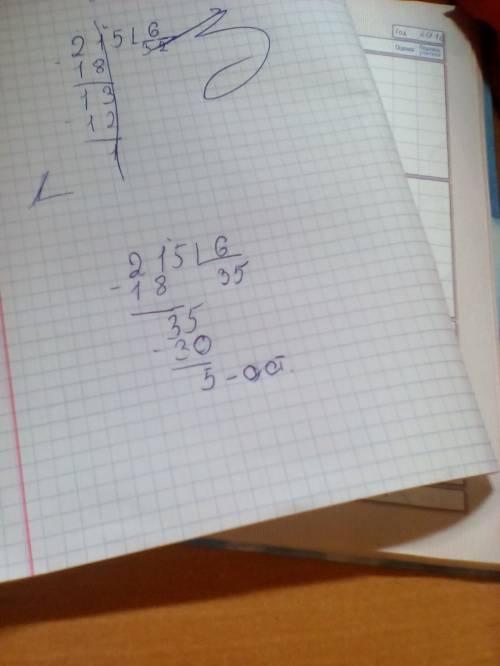 215 6
- 18 52
13
- 12
1
215 6
- 18 35
35
- 30
5 - ост.
Год
Оценка